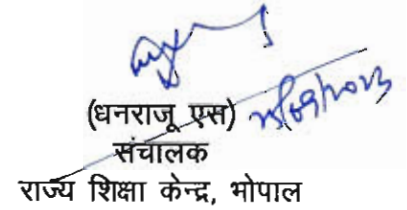 (धनराजू एस)
संचालक
राज्य शिक्षा केन्द्र, भोपाल